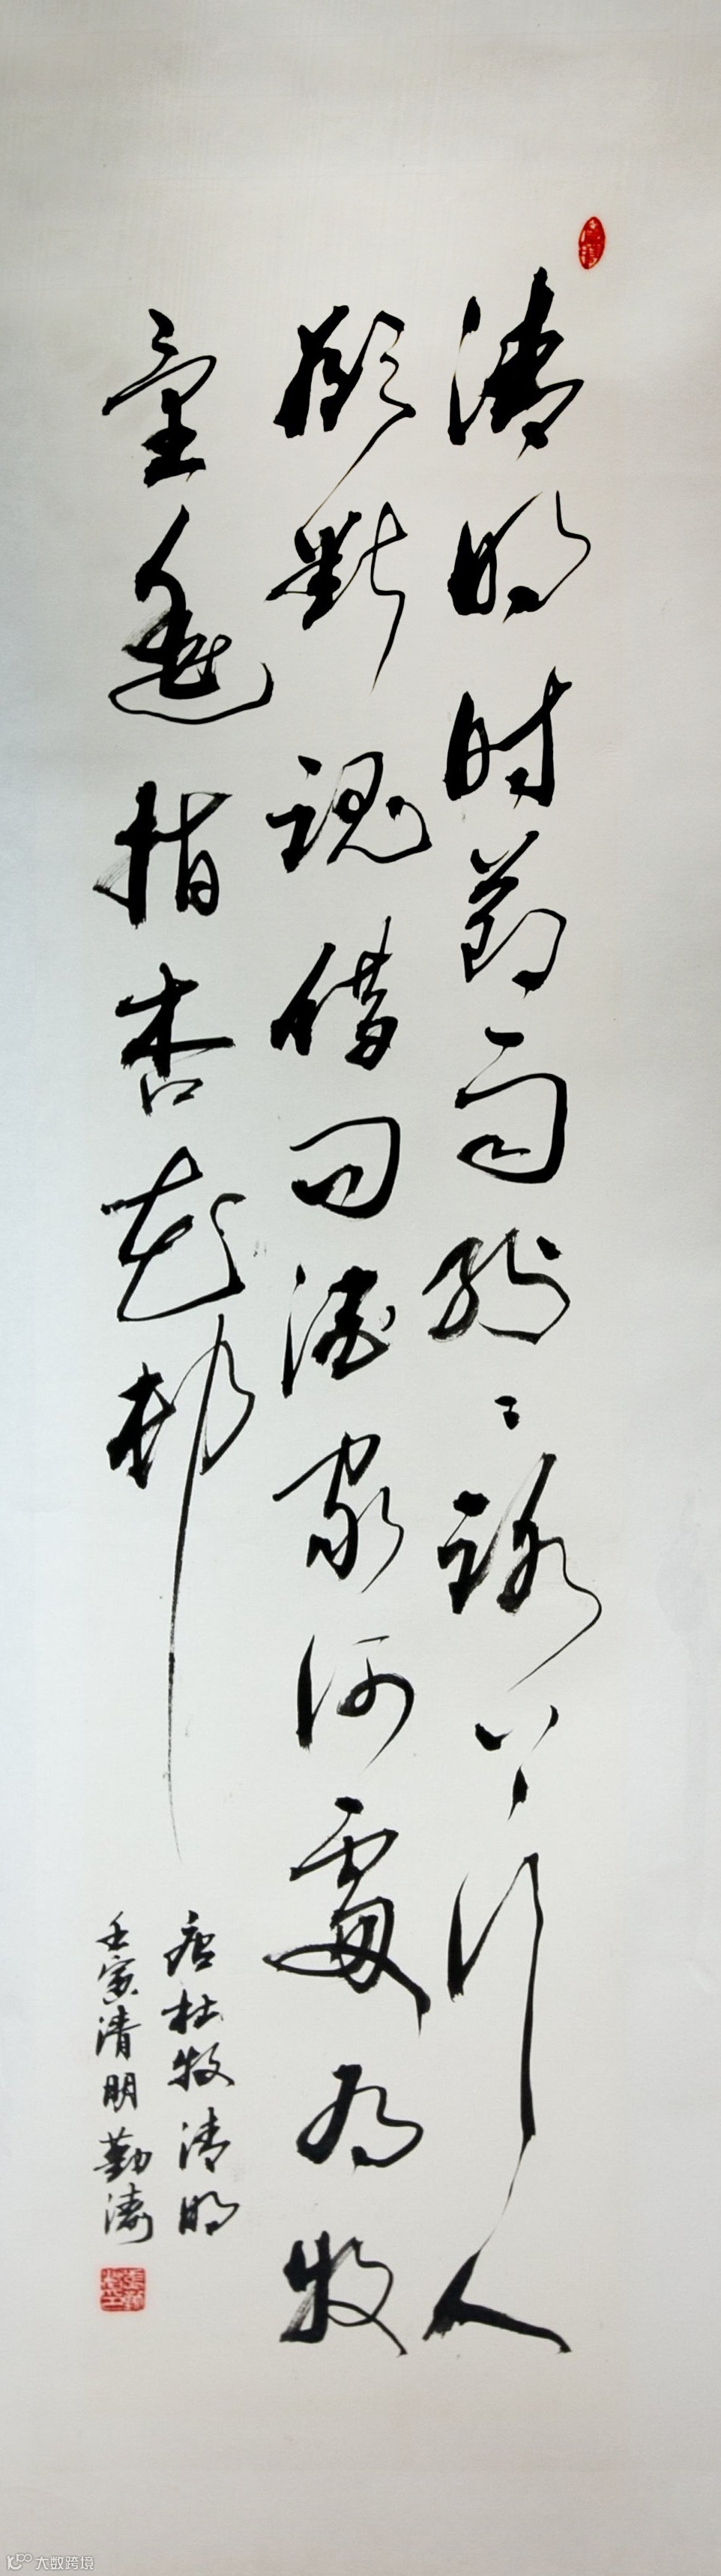 清明时节雨纷〻路上行人
欲断魂借问酒家何处有牧
童遥指杏花村
唐杜牧清明
壬寅清明勤涛
大数跨境